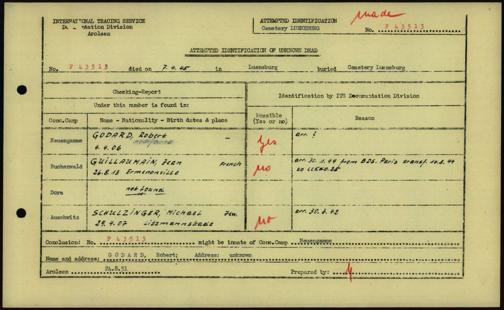 INTERNATIONAL TRACING SERVICE
Documentation Division
Arolsen
ATTEMPTED IDENTIFICATION made
Cemetery LUENEBURG No. F 43513
ATTEMPTED IDENTIFICATION OF UNKNOWN DEAD
No. F 43513 died on 7.4.45 in Lueneburg buried Cemetery Lueneburg
Checking-Report
Identification by ITS Documentation Division
Under this number is found in:
Conc.Camp Name - Nationality - Birth dates & place Possible (Yes or no) Reason
Neuengamme GODARD, Robert — Yes arr. ?
4.4.06
Buchenwald GUILLAUMAIN, Jean French no arr. from BDS. Paris transf.
26.8.13 Ermenonville
Dora not found
Auschwitz SCHULZINGER, Michael Jew. no arr. 30.6.42
29.4.07 Litzmannstadt
Conclusion: No. F 43513 might be inmate of Conc.Camp Neuengamme
Name and address: GODARD, Robert; Address: unknown
Arolsen 24.8.51 Prepared by: